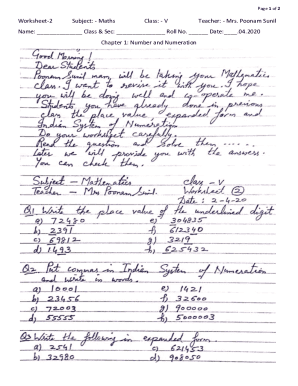 Page 1 of 2
Worksheet-2 Subject: - Maths Class: - V Teacher: - Mrs. Poonam Sunil
Name: Class & Sec Roll No. Date: .04.2020
Chapter 1: Number and Numeration
Good Morning!
Dear Students
Poonam Sunil mam, will be taking your Mathematics
class. I want to revise it with you. I hope
you will be doing well and co-operate me.
Students, you have already done in previous
class the place value, expanded form and
Indian System of Numeration.
Do your worksheet carefully.
Read the question and solve them
later we will provide you with the answers.
You can check them.
Subject - Mathematics Class - V
Teacher - Mrs Poonam Sunil. Worksheet 2
Date: 2-4-20
Q1 Write the place value of the underlined digit
a) 72480 e) 304825
b) 2391 f) 612340
c) 69812 g) 3219
d) 1493 h) 625432
Q2. Put commas in Indian System of Numeration
and write in words.
a) 10001 e) 1421
b) 23456 f) 32600
c) 72003 g) 900000
d) 55555 h) 5000003
Q3 Write the following in expanded form.
a) 2541 c) 621453
b) 32980 d) 908050